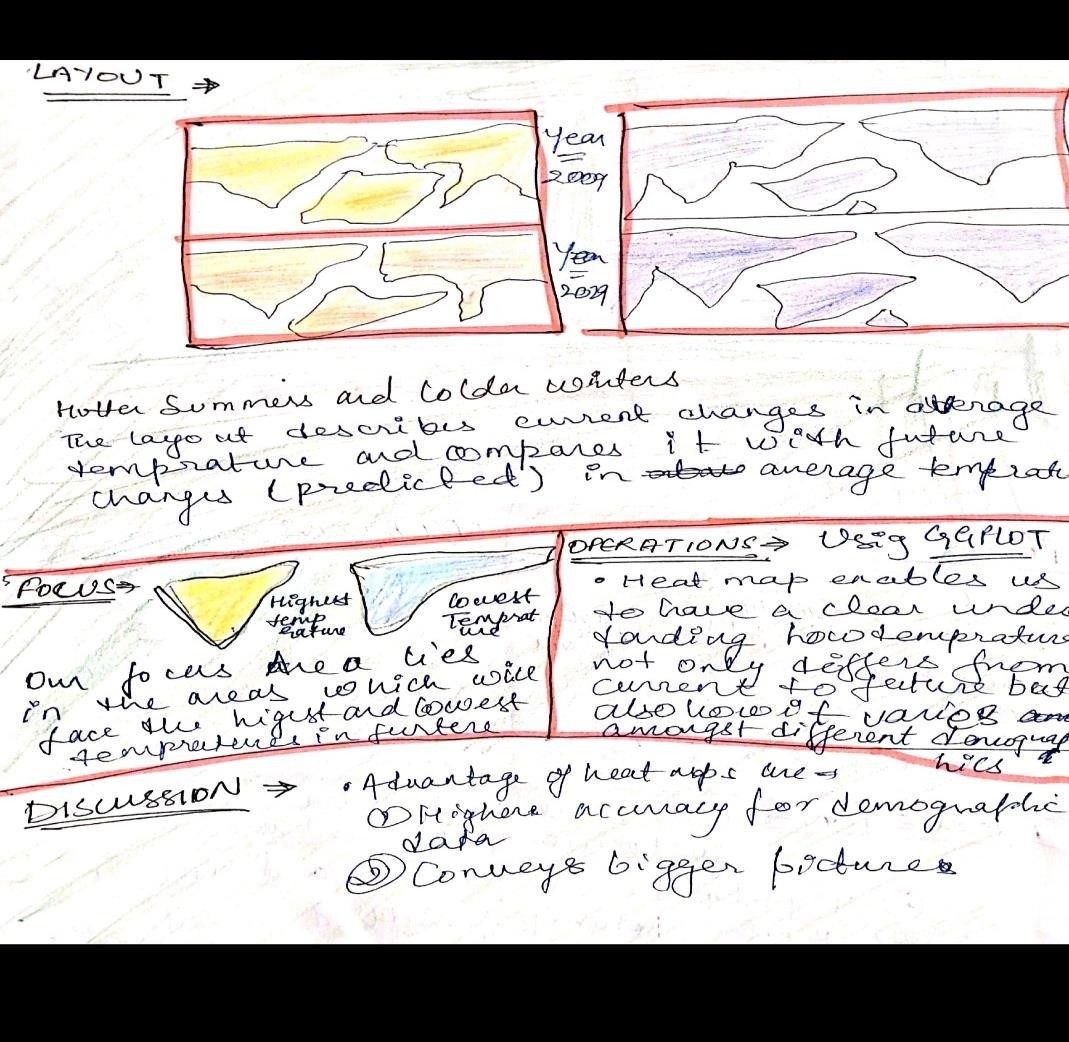 LAYOUT ⇒
Year
2009
Year
2029
Hotter Summers and Colder winters
The layout describes current changes in average
temprature and compares it with future
changes (predicted) in average temprat
FOCUS⇒
Highest
temp
erature
lowest
Temprat
ure
Our focus Area lies
in the areas which will
face the higest and lowest
tempratures in furtere
OPERATIONS⇒ Usig GGPLOT
• Heat map enables us
to have a clear unders
tanding how temprature
not only differs from
current to feuture but
also how it varies
amongst different demograp
hics
DISCUSSION ⇒
• Advantage of heat maps are →
① Highere accuracy for demographic
data
② Conveys bigger pictures